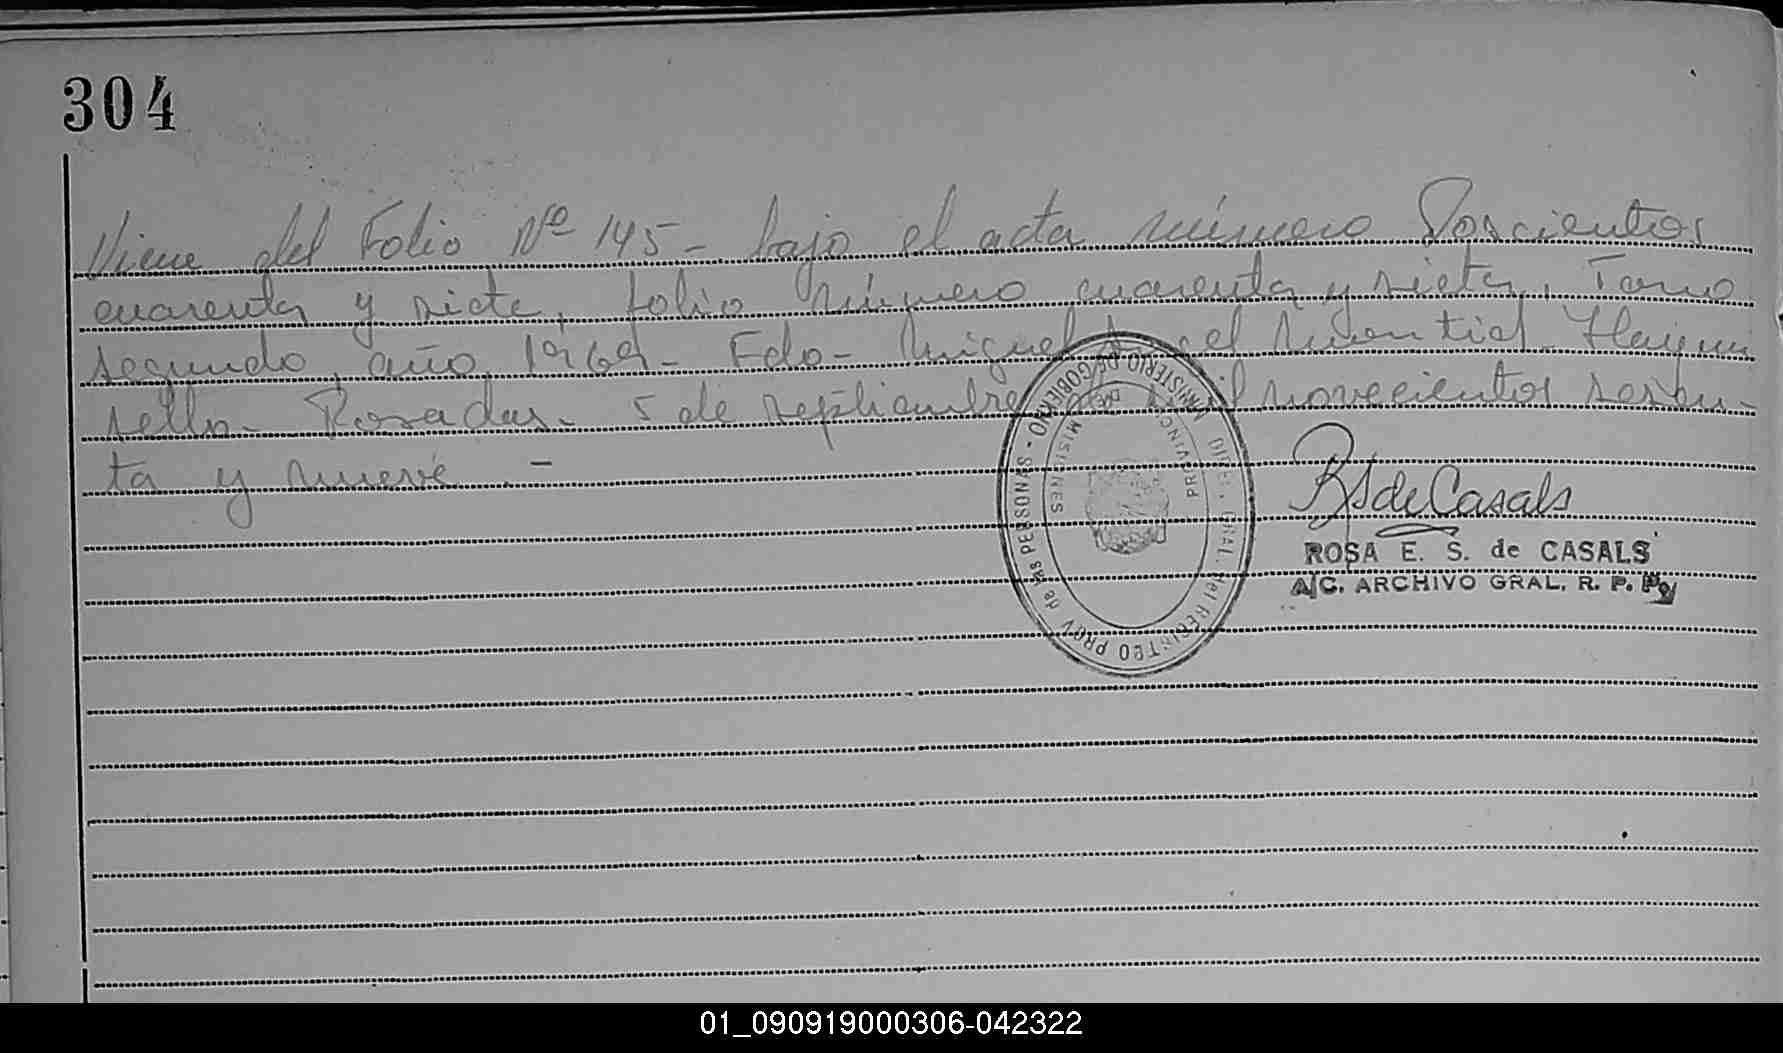 304
Viene del Folio Nº 145 - bajo el acta número Doscientos
cuarenta y siete, folio número cuarenta y siete, Tomo
segundo, año 1969 - Fdo - Miguel Hay un
sello - Posadas - 5 de septiembre mil novecientos sesen-
ta y nueve . -
MINISTERIO DE GOBIERNO - DIREC. GRAL. del REGISTRO PROV. de las PERSONAS -
PROVINCIA DE MISIONES
RS de Casals
ROSA E. S. de CASALS
A/C. ARCHIVO GRAL. R. P. P.
01_090919000306-042322